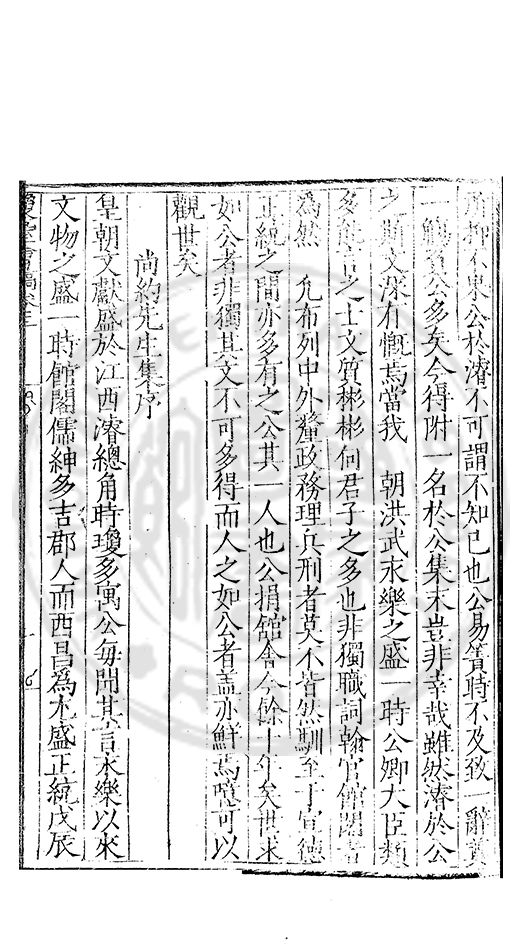 所抑不果公於濬不可謂不知已也公易簀時不及致一辭奠
一觴負公多矣今得附一名於公集末豈非幸哉雖然濬於公
之斯文深有慨焉當我 朝洪武永樂之盛一時公卿大臣類
多能言之士文質彬彬何君子之多也非獨職詞翰官館閣者
為然 凡布列中外釐政務理兵刑者莫不皆然馴至于宣德
正統之間亦多有之公其一人也公捐館舍今餘十年矣世求
如公者非獨其文不可多得而人之如公者盖亦鮮焉噫可以
觀世矣
尚約先生集序
皇朝文獻盛於江西濬總角時瓊多寓公每聞其言永樂以來
文物之盛一時館閣儒紳多吉郡人而西昌為尤盛正統戊辰